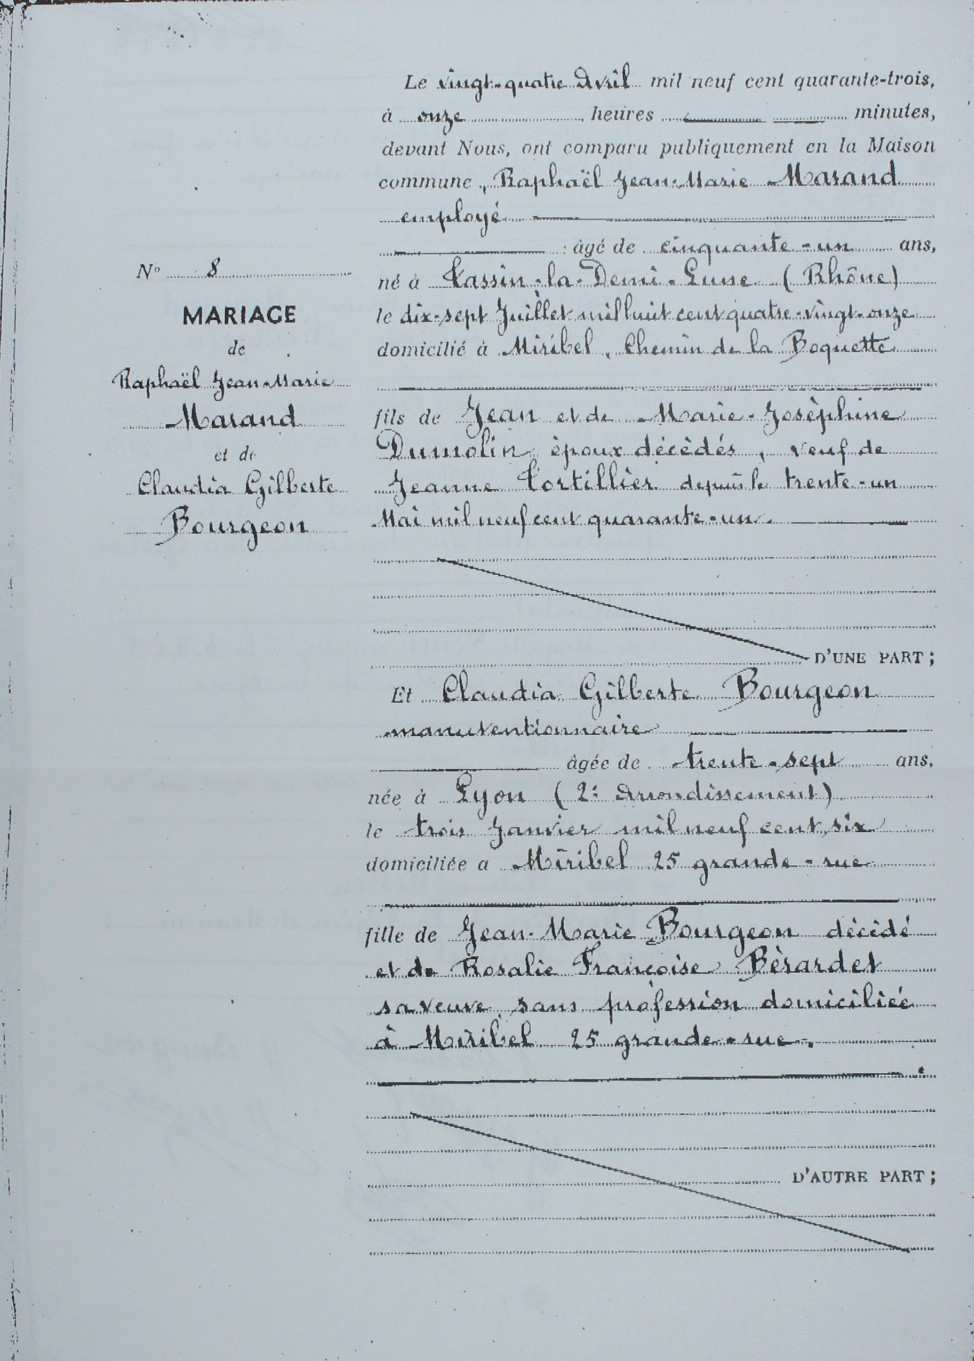 Le vingt-quatre Avril mil neuf cent quarante-trois,
à onze heures minutes,
devant Nous, ont comparu publiquement en la Maison
commune, Raphaël Jean-Marie Marand
employé
âgé de cinquante-un ans,
né à Tassin-la-Demi-Lune (Rhône)
le dix-sept Juillet mil huit cent quatre-vingt-onze
domicilié à Miribel, Chemin de la Boquette
fils de Jean et de Marie-Josèphine
Dumolin, èpoux décèdés, veuf de
Jeanne Tortillier depuis le trente-un
Mai mil neuf cent quarante-un.
D'UNE PART ;
N° 8
MARIAGE
de
Raphaël Jean-Marie
Marand
et de
Claudia Gilberte
Bourgeon
Et Claudia Gilberte Bourgeon
manutentionnaire
âgée de trente-sept ans,
née à Lyon (2e Arrondissement)
le trois Janvier mil neuf cent six
domiciliée à Miribel 25 grande-rue
fille de Jean-Marie Bourgeon décédé
et de Rosalie Françoise Bèrardet
sa veuve, sans profession domiciliée
à Miribel 25 grande-rue.
D'AUTRE PART ;